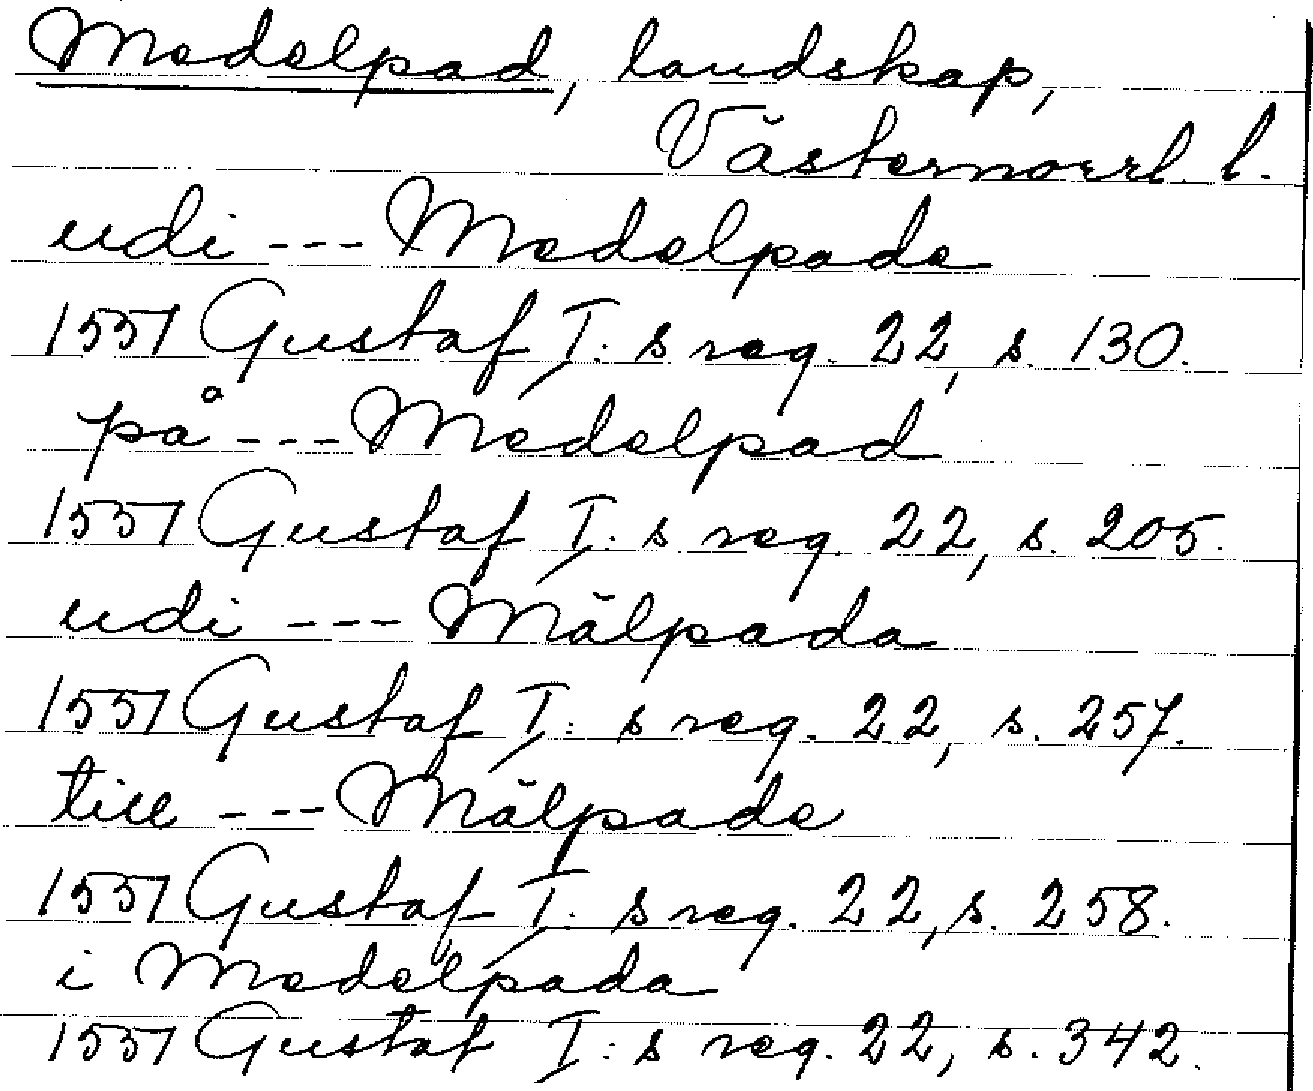 Medelpad, landskap,
Västernorrl. l.
udi --- Medelpade
1551 Gustaf I:s reg. 22, s. 130.
på --- Medelpad
1551 Gustaf I:s reg. 22, s. 205.
udi --- Mälpada
1551 Gustaf I:s reg. 22, s. 257.
till --- Mälpade
1551 Gustaf I:s reg. 22, s. 258.
i Medelpada
1551 Gustaf I:s reg. 22, s. 342.